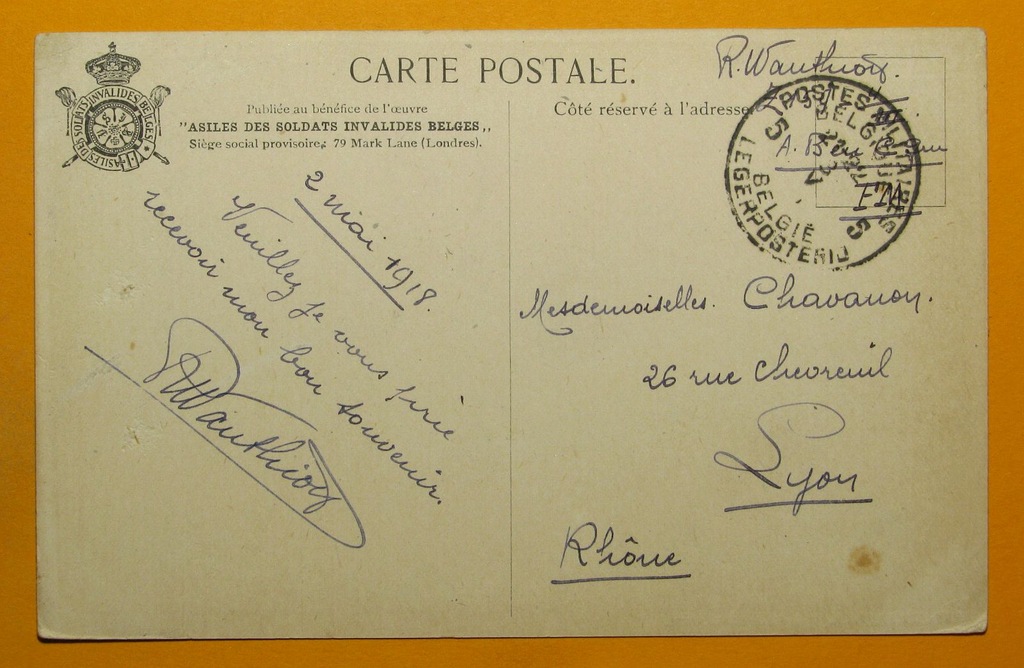 CARTE POSTALE.
Publiée au bénéfice de l'œuvre
"ASILES DES SOLDATS INVALIDES BELGES„
Siège social provisoire; 79 Mark Lane (Londres).
ASILES DES SOLDATS INVALIDES BELGES
2 mai 1918.
Veuillez je vous prie
recevoir mon bon souvenir.
RWauthioz
Côté réservé à l'adresse
R. Wauthioz.
A. B.
FM
POSTES MILITAIRES
BELGIQUE
5 5
BELGIE
LEGERPOSTERIJ
Mesdemoiselles. Chavanon.
26 rue Chevreuil
Lyon
Rhône